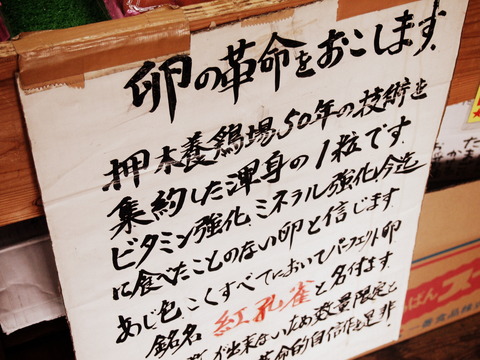 卵の革命をおこします
押木養鶏場50年の技術を
集約した渾身の1粒です.
ビタミン強化、ミネラル強化今迄
に食べたことのない卵と信じます.
あじ色、こくすべてにおいてパーフェクト卵
銘名 紅孔雀と名付ます.
が出来ないため数量限定と
革命的自信作を是非
ぱん
一番食品株式